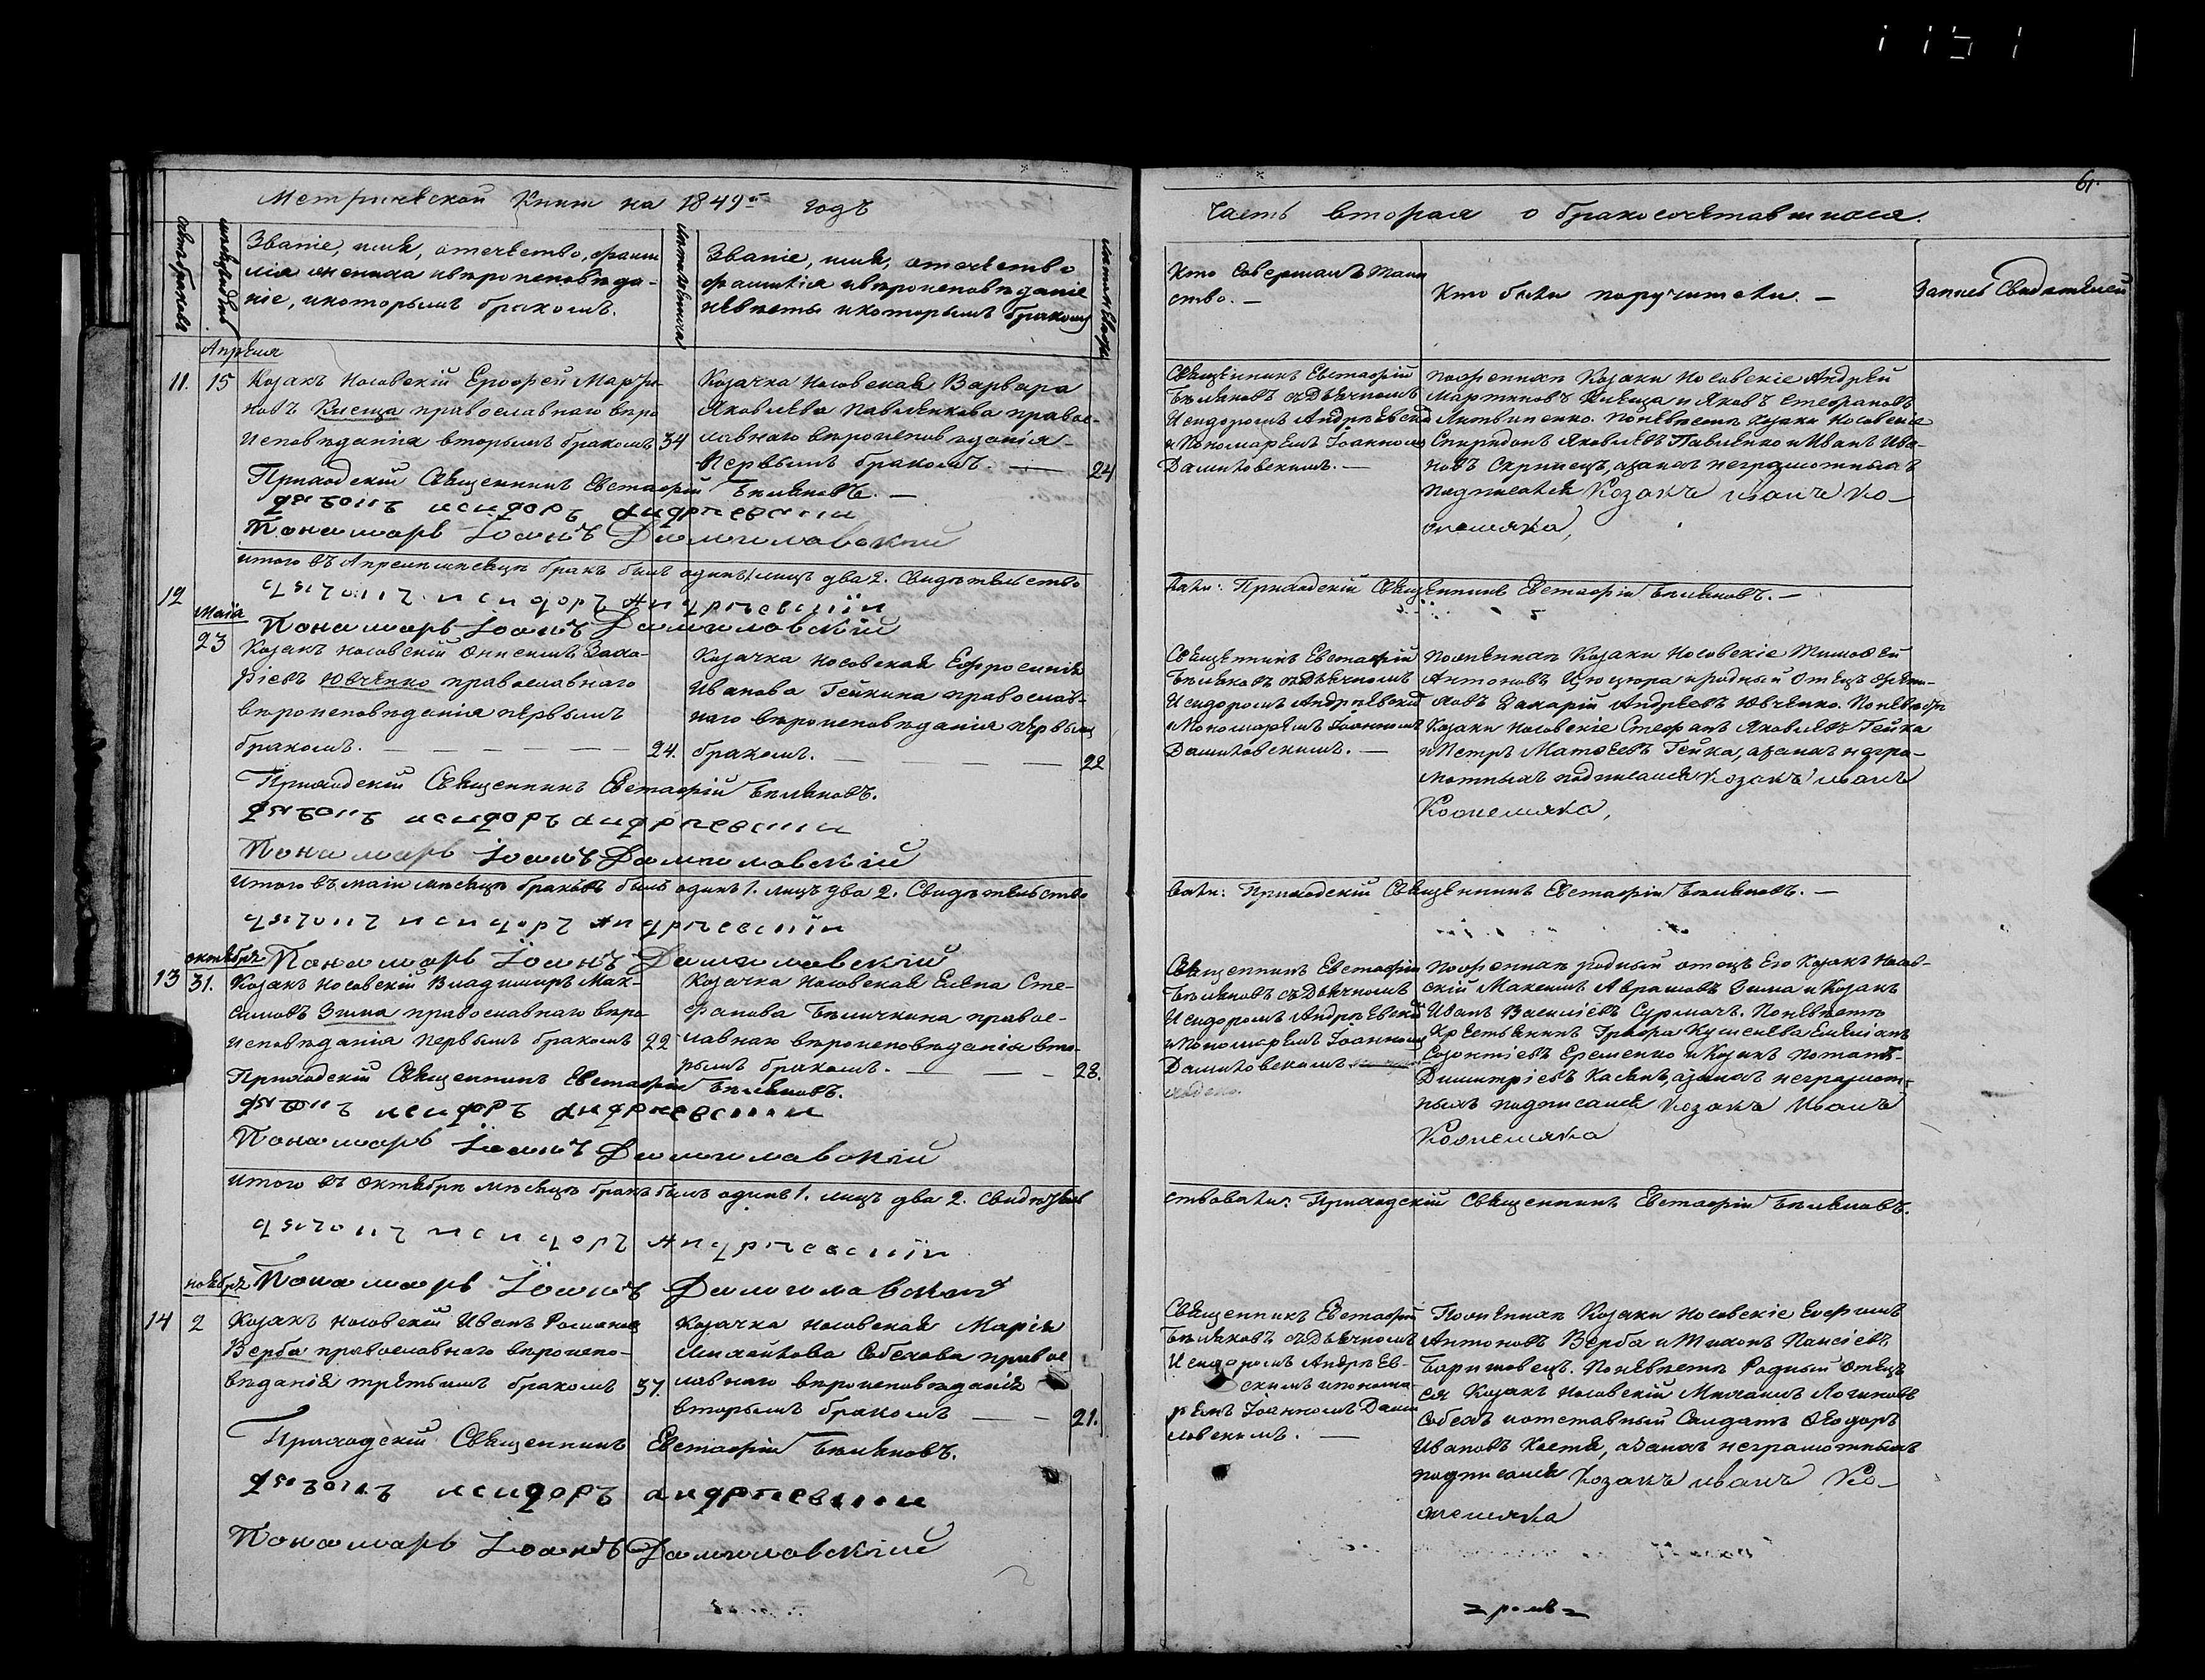 61.
Метрической Книги на 1849й годъ
Часть вторая о бракосочетавшихся.
Званіе, имя, отечество, фами
лія жениха и вѣроисповѣда-
ніе, и которымъ бракомъ.
Званіе, имя, отечество
фамилія и вѣроисповѣданіе
невѣсты и которымъ бракомъ
Кто совершалъ таин
ство. —
Кто были поручители. —
Запись Свидѣтелей
Апреля
11. 15 Козакъ Носовскій Ерофей Марти
новъ Клеща православнаго вѣро
исповѣданія вторымъ бракомъ 34
Козачка Носовская Варвара
Яковлева Павленкова правос-
лавнаго вѣроисповѣданія
первымъ бракомъ. — 24
Священникъ Евстафій
Бѣляновъ съ Дьячкомъ
Исидоромъ Андріевскимъ
и Пономаремъ Іоанномъ
Даниловскимъ. —
По женихѣ Козаки Носовскіе Андрей
Мартиновъ Клеща и Яковъ Стефановъ
Литвиненко. По невѣстѣ Козаки Носовскіе
Спиридонъ Яковлевъ Павленко и Иванъ Ива-
новъ Скрипецъ, а за нихъ неграмотныхъ
подписался Козакъ иванъ Ко-
жемяка,
Приходскій Священникъ Евстафій Бѣляновъ. —
дячокъ исидоръ андріевскій
Понамарь Іоанъ Даниловскій
Итого въ Апрелѣ мѣсяцѣ бракъ былъ одинъ 1. лицъ два 2. Свидѣтельство
вали: Приходскій Священникъ Евстафій Бѣляновъ. —
дячокъ исидоръ Андріевскій
Понамарь Іоанъ Даниловскій
Маія
12 23 Козакъ Носовскій Онисимъ Заха-
ріевъ Ювченко православнаго
вѣроисповѣданія первымъ
бракомъ. — 24.
Козачка Носовская Ефросинія
Иванова Гейкина православ-
наго вѣроисповѣданія первымъ
бракомъ. — 22
Священникъ Евстафій
Бѣляновъ съ Дьячкомъ
Исидоромъ Андріевскимъ
и Пономаремъ Іоанномъ
Даниловскимъ. —
По женихѣ Козаки Носовскіе Тимофей
Антоновъ Цюцюра и родный Отецъ жени-
ховъ Захарій Андреевъ Ювченко. По невѣстѣ
Козаки Носовскіе Стефанъ Яковлевъ Гейка
и Петръ Матвеевъ Гейка, а за нихъ негра-
мотныхъ подписался Козакъ иванъ
Кожемяка,
Приходскій Священникъ Евстафій Бѣляновъ.
дячокъ исидоръ андріевскій
Понамарь Іоанъ Даниловскій
Итого въ маіи мѣсяцѣ браковъ былъ одинъ 1. лицъ два 2. Свидѣтельство
вали: Приходскій Священникъ Евстафій Бѣляновъ. —
дячокъ исидоръ Андріевскій
Понамарь Іоанъ Даниловскій
октября
13 31. Козакъ Носовскій Владимиръ Мак-
симовъ Зима православнаго вѣро
исповѣданія первымъ бракомъ 22
Козачка Носовская Елена Сте-
фанова Бѣличкина правос-
лавнаго вѣроисповѣданія вто-
рымъ бракомъ. — 28.
Священникъ Евстафій
Бѣляновъ съ Дьячкомъ
Исидоромъ Андріевскимъ
и Пономаремъ Іоанномъ
Даниловскимъ
По женихѣ родный отецъ Его Козакъ Носов-
скій Максимъ Аврамовъ Зима и Козакъ
Иванъ Василіевъ Сурмачъ. По невѣстѣ
Крестьянинъ Графа Кушелева Емеліанъ
Созонтіевъ Еременко и Козакъ Потапъ
Димитріевъ Касянъ, а за нихъ неграмот-
ныхъ подписался Козакъ Иванъ
Кожемяка
Приходскій Священникъ Евстафій Бѣляновъ.
дячокъ исидоръ андріевскій
Понамарь Іоанъ Даниловскій
Итого въ Октябрѣ мѣсяцѣ бракъ былъ одинъ 1. лицъ два 2. свидѣтель
ствовали: Приходскій Священникъ Евстафій Бѣляновъ.
дячокъ исидоръ Андріевскій
Понамарь Іоанъ Даниловскій
ноября
14 2 Козакъ Носовскій Иванъ Романовъ
Верба православнаго вѣроиспо-
вѣданія третьимъ бракомъ 57.
Козачка Носовская Марія
Михайлова Собехова правос
лавнаго вѣроисповѣданія
вторымъ бракомъ — 21.
Священникъ Евстафій
Бѣляновъ съ Дьячкомъ
Исидоромъ Андріев-
скимъ и понома-
ремъ Іоанномъ Дани
ловскимъ. —
По женихѣ Козаки Носовскіе Ефремъ
Антоновъ Верба и Тихонъ Паисіевъ
Боришовецъ. По невѣстѣ Родный Отецъ
ея Козакъ Носовскій Михаилъ Логиновъ
Собехъ и отставный Солдатъ Ѳеодоръ
Ивановъ Костя, а за нихъ неграмотныхъ
подписался Козакъ иванъ Ко-
жемяка
Приходскій Священникъ Евстафій Бѣляновъ.
дячокъ исидоръ андріевскій
Понамарь Іоанъ Даниловскій